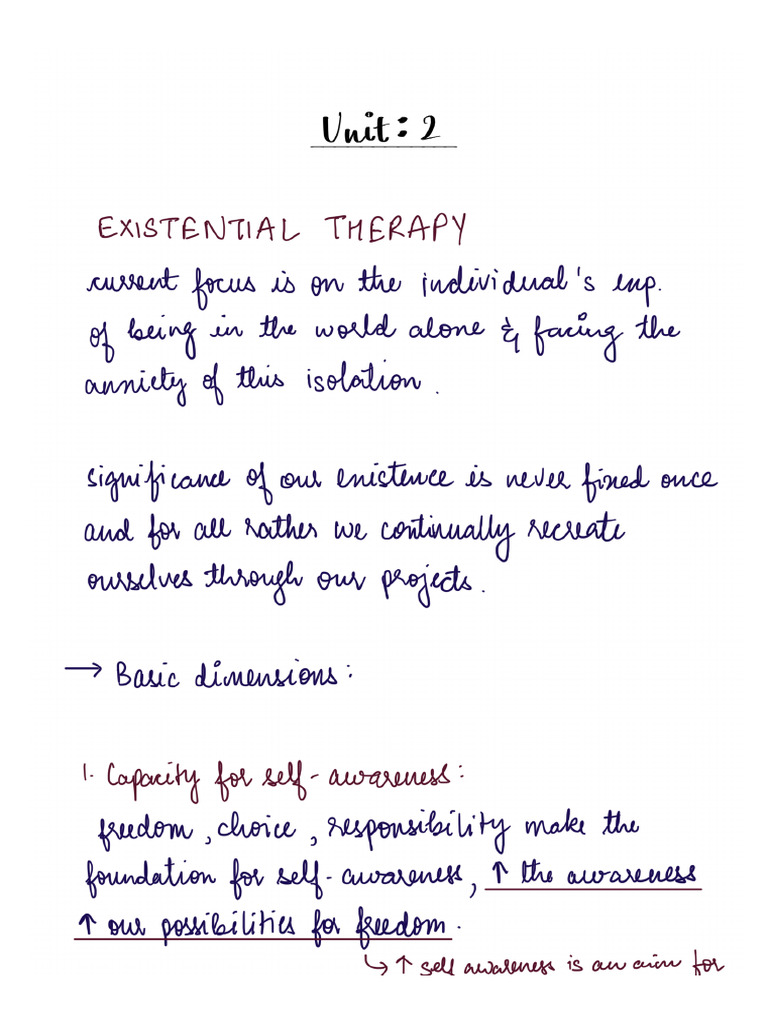 Unit: 2
EXISTENTIAL THERAPY
current focus is on the individual's exp.
of being in the world alone & facing the
anxiety of this isolation.
significance of our existence is never fixed once
and for all rather we continually recreate
ourselves through our projects.
→ Basic dimensions:
1. Capacity for self-awareness:
freedom, choice, responsibility make the
foundation for self-awareness, ↑ the awareness
↑ our possibilities for freedom.
↳ ↑ self awareness is an aim for